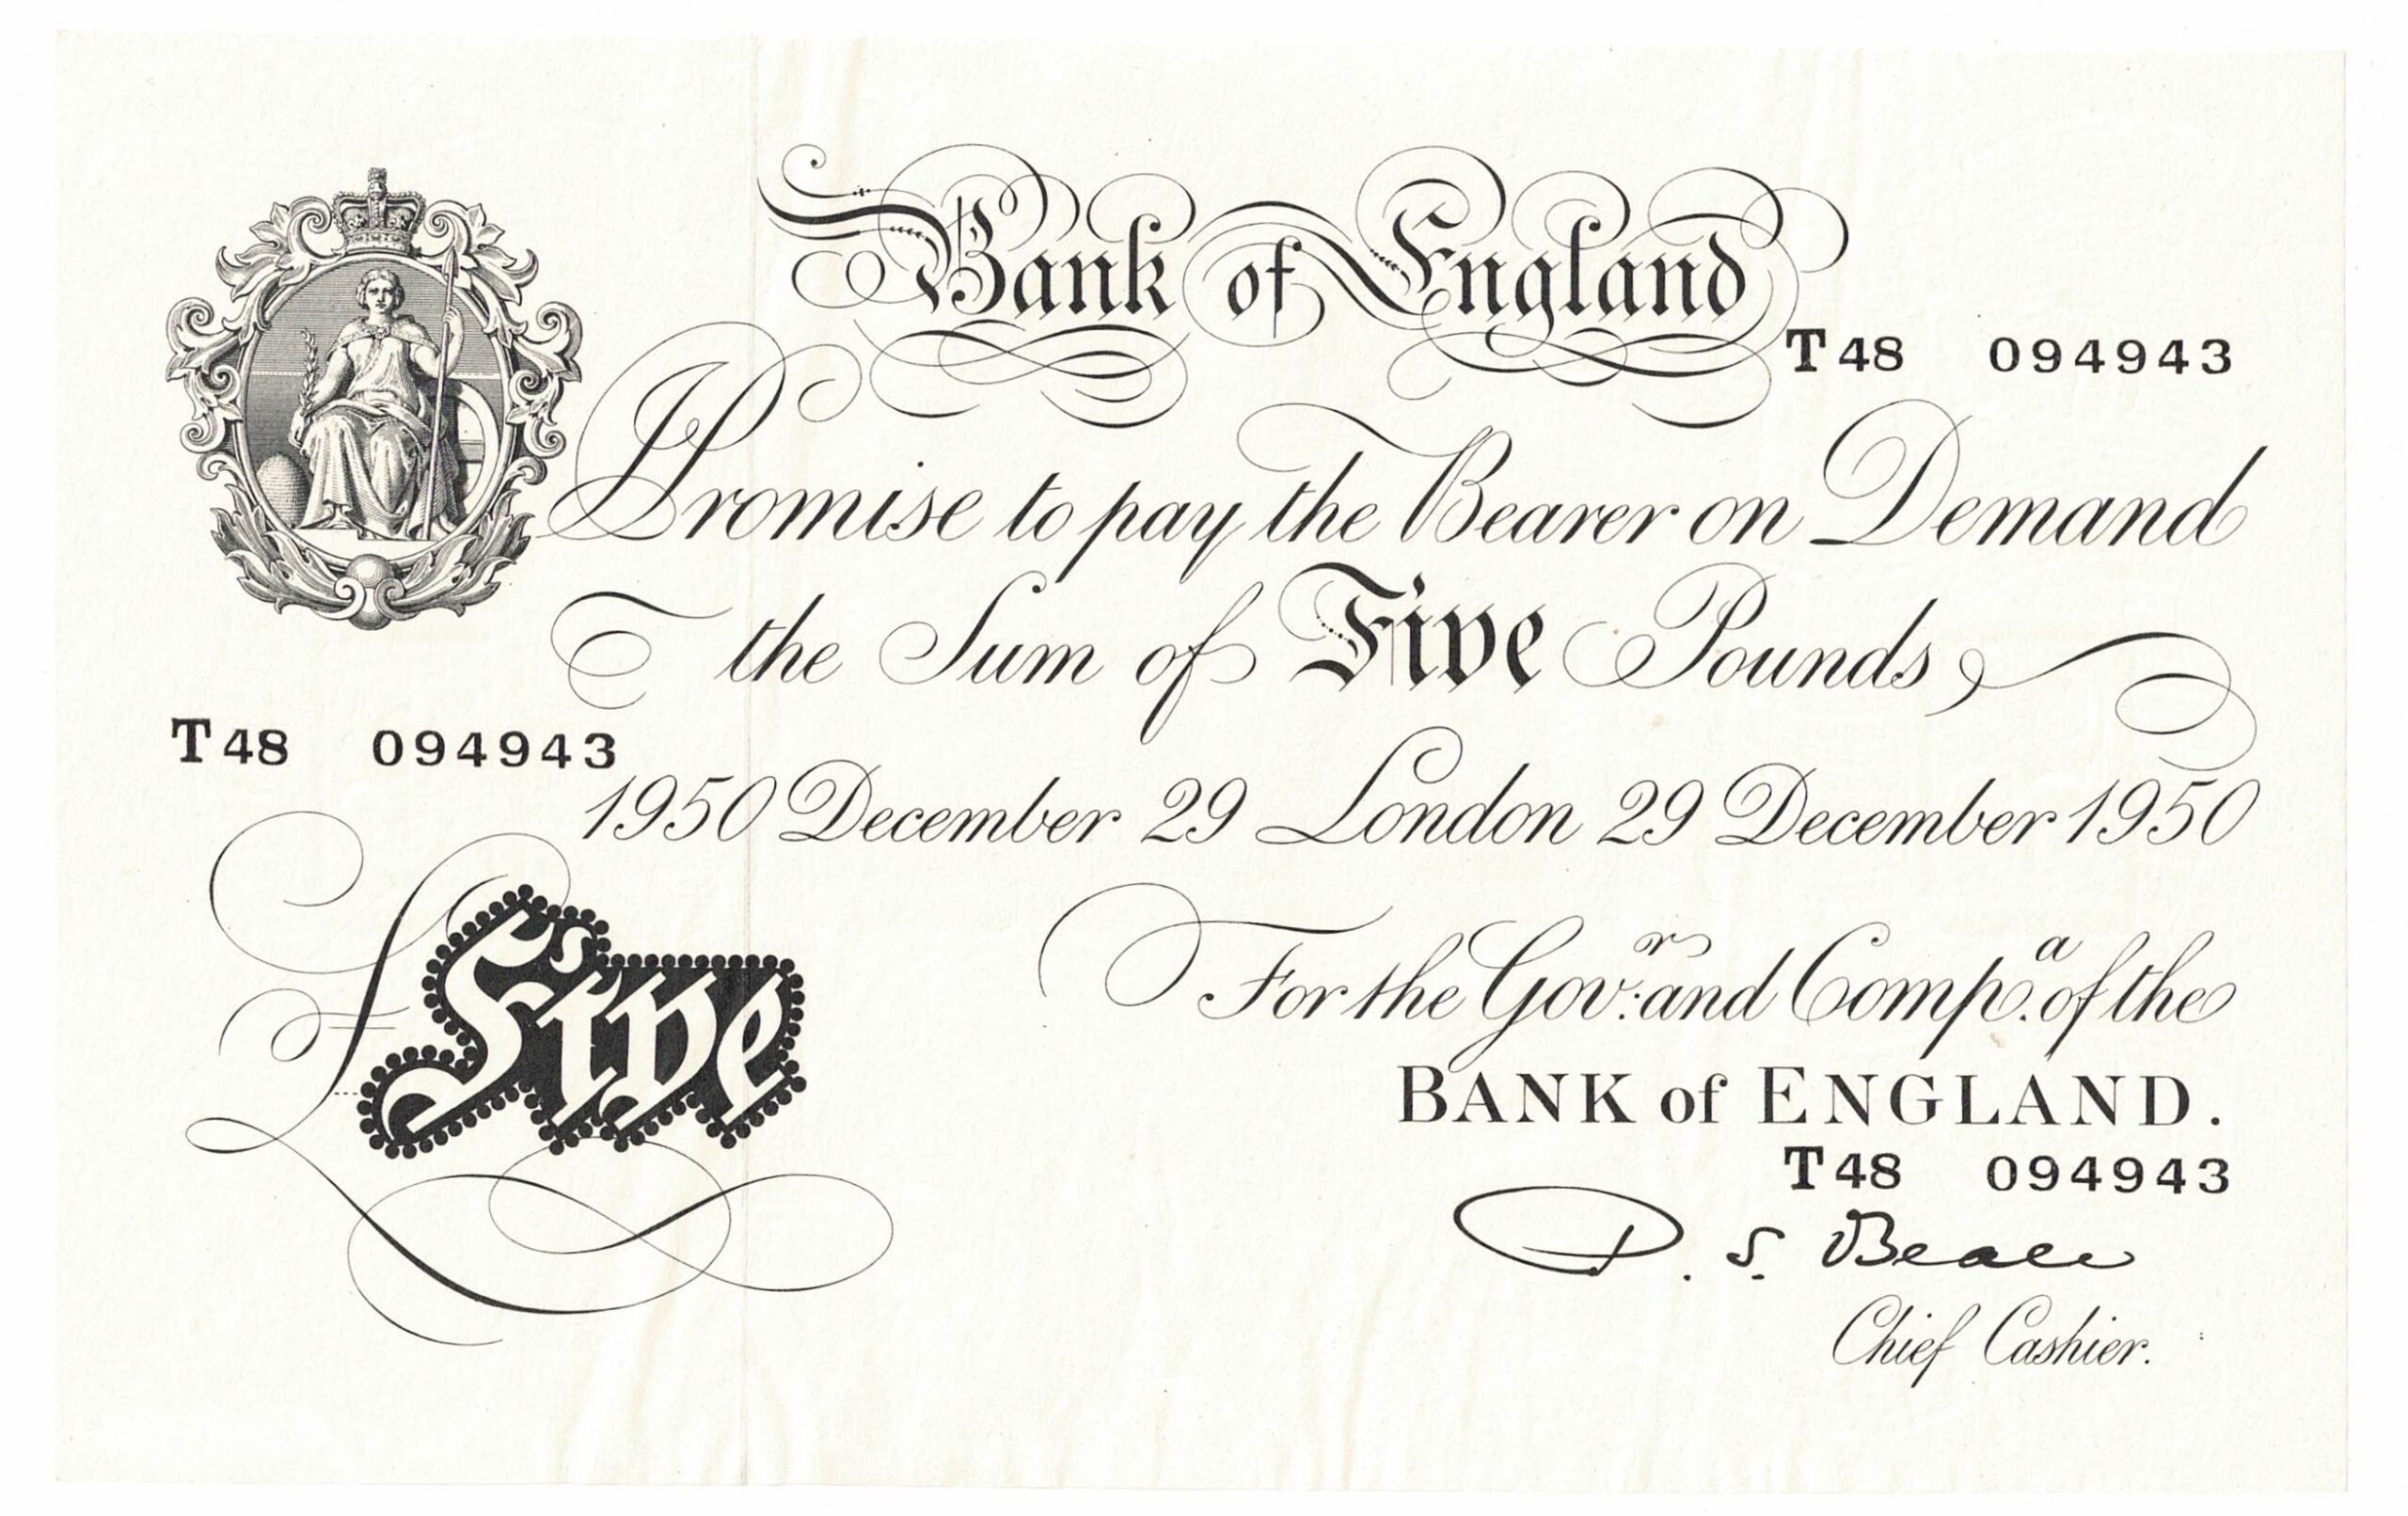 Bank of England
T48 094943
I Promise to pay the Bearer on Demand
the Sum of Five Pounds
T48 094943
1950 December 29 London 29 December 1950
£ Five
For the Gov.r and Comp.a of the
BANK of ENGLAND.
T48 094943
P. S. Beale
Chief Cashier.